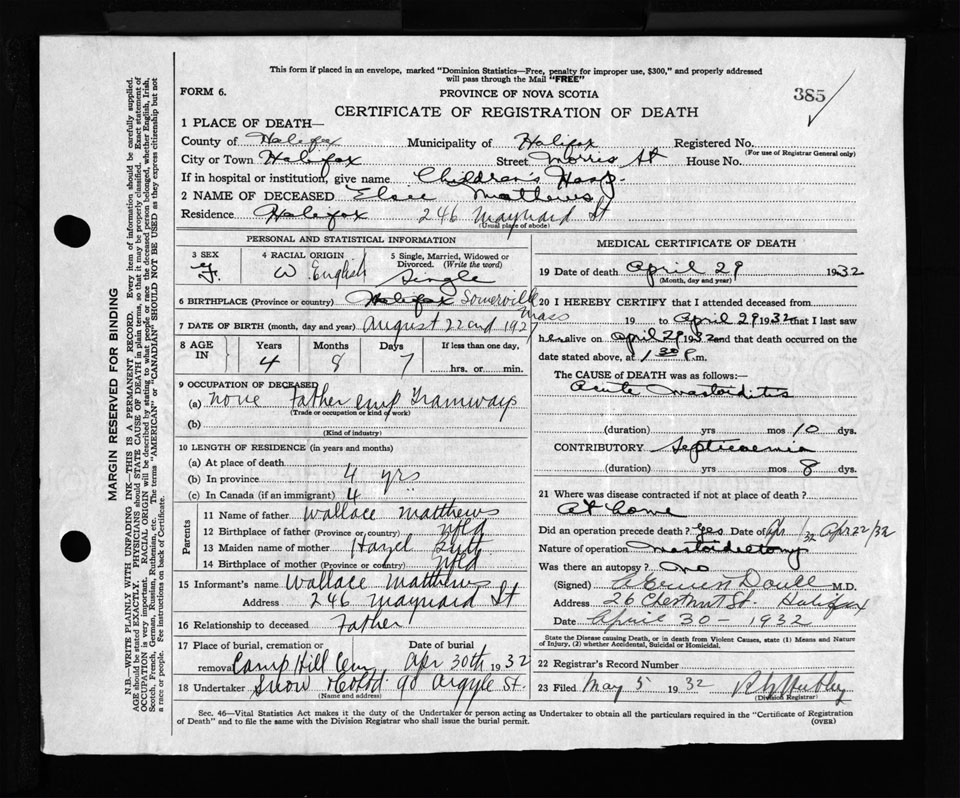 This form if placed in an envelope, marked "Dominion Statistics—Free, penalty for improper use, $300," and properly addressed
will pass through the Mail "FREE"
FORM 6.
PROVINCE OF NOVA SCOTIA
385
CERTIFICATE OF REGISTRATION OF DEATH
1 PLACE OF DEATH—
County of Halifax Municipality of Halifax Registered No.
(For use of Registrar General only)
City or Town Halifax Street Morris St House No.
If in hospital or institution, give name Children's Hosp.
2 NAME OF DECEASED Elsie Mathews
Residence Halifax 246 Maynard St
(Usual place of abode)
PERSONAL AND STATISTICAL INFORMATION
3 SEX 4 RACIAL ORIGIN 5 Single, Married, Widowed or
Divorced. (Write the word)
F. W English Single
6 BIRTHPLACE (Province or country) Halifax Somerville
Mass
7 DATE OF BIRTH (month, day and year) August 22nd 1927
8 AGE IN Years Months Days If less than one day,
4 8 7 hrs. or min.
9 OCCUPATION OF DECEASED
(a) none Father emp Tramways
(Trade or occupation or kind of work)
(b)
(Kind of industry)
10 LENGTH OF RESIDENCE (in years and months)
(a) At place of death
(b) In province 4 yrs
(c) In Canada (if an immigrant) 4 "
Parents
11 Name of father Wallace Matthews
12 Birthplace of father (Province or country) Nfld
13 Maiden name of mother Hazel
14 Birthplace of mother (Province or country) Nfld
15 Informant's name Wallace Matthews
Address 246 Maynard St
16 Relationship to deceased Father
17 Place of burial, cremation or Date of burial
removal Camp Hill Cem Apr 30th 1932
18 Undertaker Snow & Co Ltd 90 Argyle St.
(Name and address)
MEDICAL CERTIFICATE OF DEATH
19 Date of death April 29 1932
(Month, day and year)
20 I HEREBY CERTIFY that I attended deceased from
19 to April 29 1932 that I last saw
her alive on April 29 1932 and that death occurred on the
date stated above, at 1 30 P.m.
The CAUSE of DEATH was as follows:—
Acute Mastoiditis
(duration) yrs mos 10 dys.
CONTRIBUTORY Septicaemia
(duration) yrs mos 8 dys.
21 Where was disease contracted if not at place of death?
At home
Did an operation precede death? Yes Date of Apr /32 Apr 22/32
Nature of operation Mastoidectomy
Was there an autopsy? No
(Signed) Doull M.D.
Address 26 Chestnut St. Halifax
Date April 30 - 1932
State the Disease causing Death, or in death from Violent Causes, state (1) Means and Nature
of Injury, (2) whether Accidental, Suicidal or Homicidal.
22 Registrar's Record Number
23 Filed May 5 1932
(Division Registrar)
Sec. 46—Vital Statistics Act makes it the duty of the Undertaker or person acting as Undertaker to obtain all the particulars required in the "Certificate of Registration
of Death" and to file the same with the Division Registrar who shall issue the burial permit. (OVER)
MARGIN RESERVED FOR BINDING
N.B.—WRITE PLAINLY WITH UNFADING INK—THIS IS A PERMANENT RECORD. Every item of information should be carefully supplied.
AGE should be stated EXACTLY. PHYSICIANS should STATE CAUSE OF DEATH in plain terms, so that it may be properly classified. Exact statement of
OCCUPATION is very important. RACIAL ORIGIN will be described by stating to what people or race the deceased person belonged, whether English, Irish,
Scotch, French, German, Russian, Ruthenian, etc. The terms "AMERICAN" or "CANADIAN" SHOULD NOT BE USED as they express citizenship but not
a race or people. See instructions on back of Certificate.